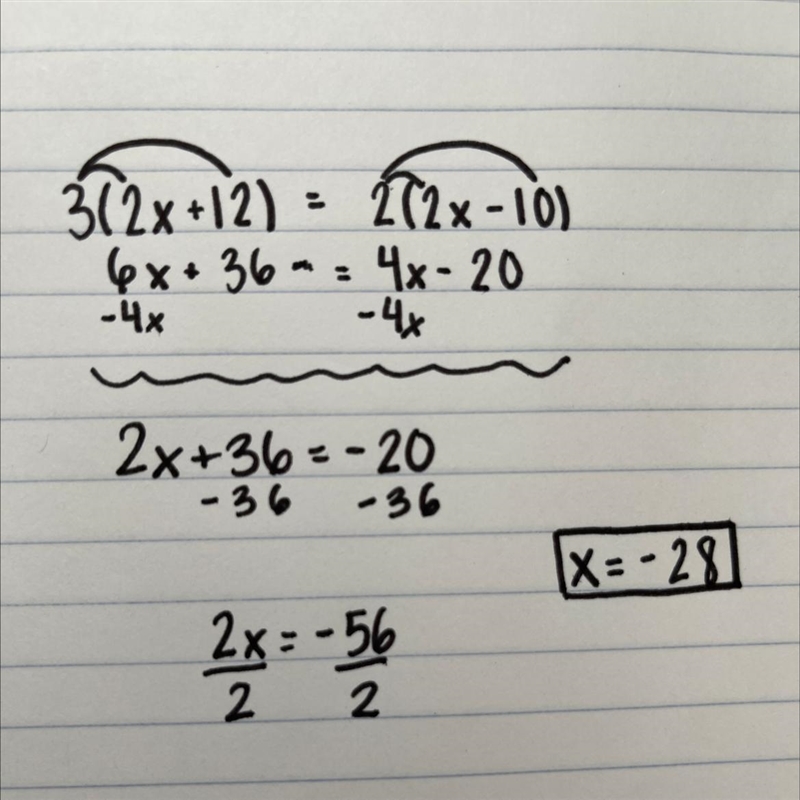 3(2x+12) = 2(2x-10)
6x + 36 - = 4x - 20
-4x -4x
2x+36 = -20
-36 -36
x = -28
2x = -56
2 2